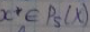 x* ∈ P_S(x)